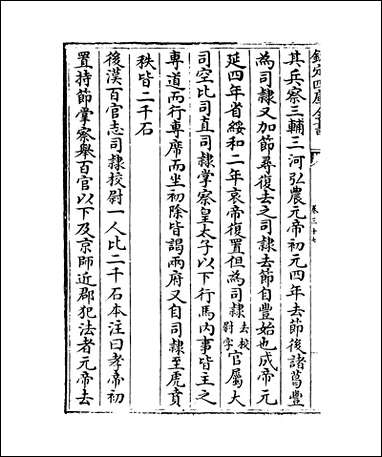 欽定四庫全書
卷三十七
其兵察三輔三河弘農元帝初元四年去節後諸葛豐
為司隸又加節尋復去之司隸去節自豐始也成帝元
延四年省綏和二年哀帝復置但為司隸去校尉字官屬大
司空比司直司隸掌察皇太子以下行馬內事皆主之
專道而行專席而坐初除皆謁兩府又自司隸至虎賁
秩皆二千石
後漢百官志司隸校尉一人比二千石本注曰孝帝初
置持節掌察舉百官以下及京師近郡犯法者元帝去